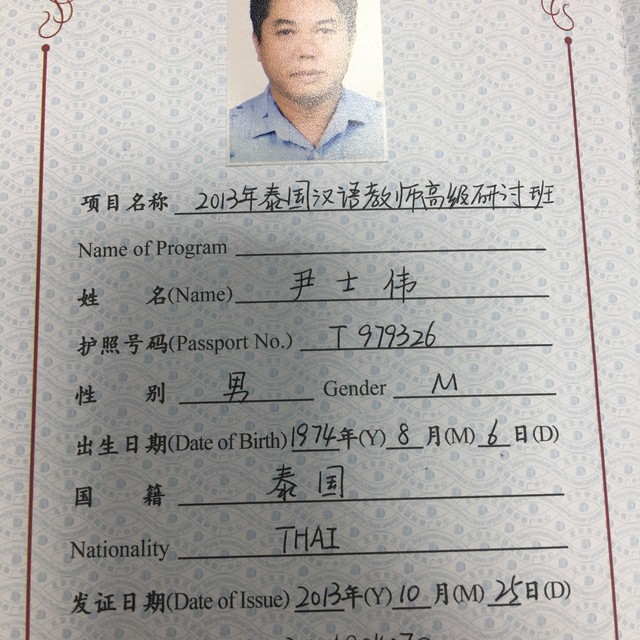 项目名称 2013年泰国汉语教师高级研讨班
Name of Program
姓 名(Name) 尹士伟
护照号码(Passport No.) T 979326
性 别 男 Gender M
出生日期(Date of Birth) 1974年(Y) 8月(M) 6日(D)
国 籍 泰国
Nationality THAI
发证日期(Date of Issue) 2013年(Y) 10月(M) 25日(D)